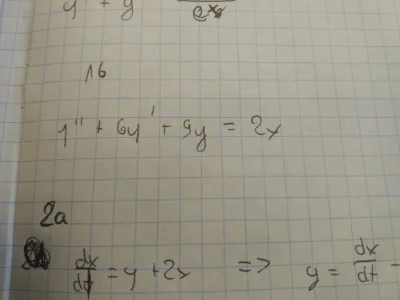 1б
y'' + 6y' + 9y = 2x
2а
dx/dt = y + 2x => y = dx/dt -